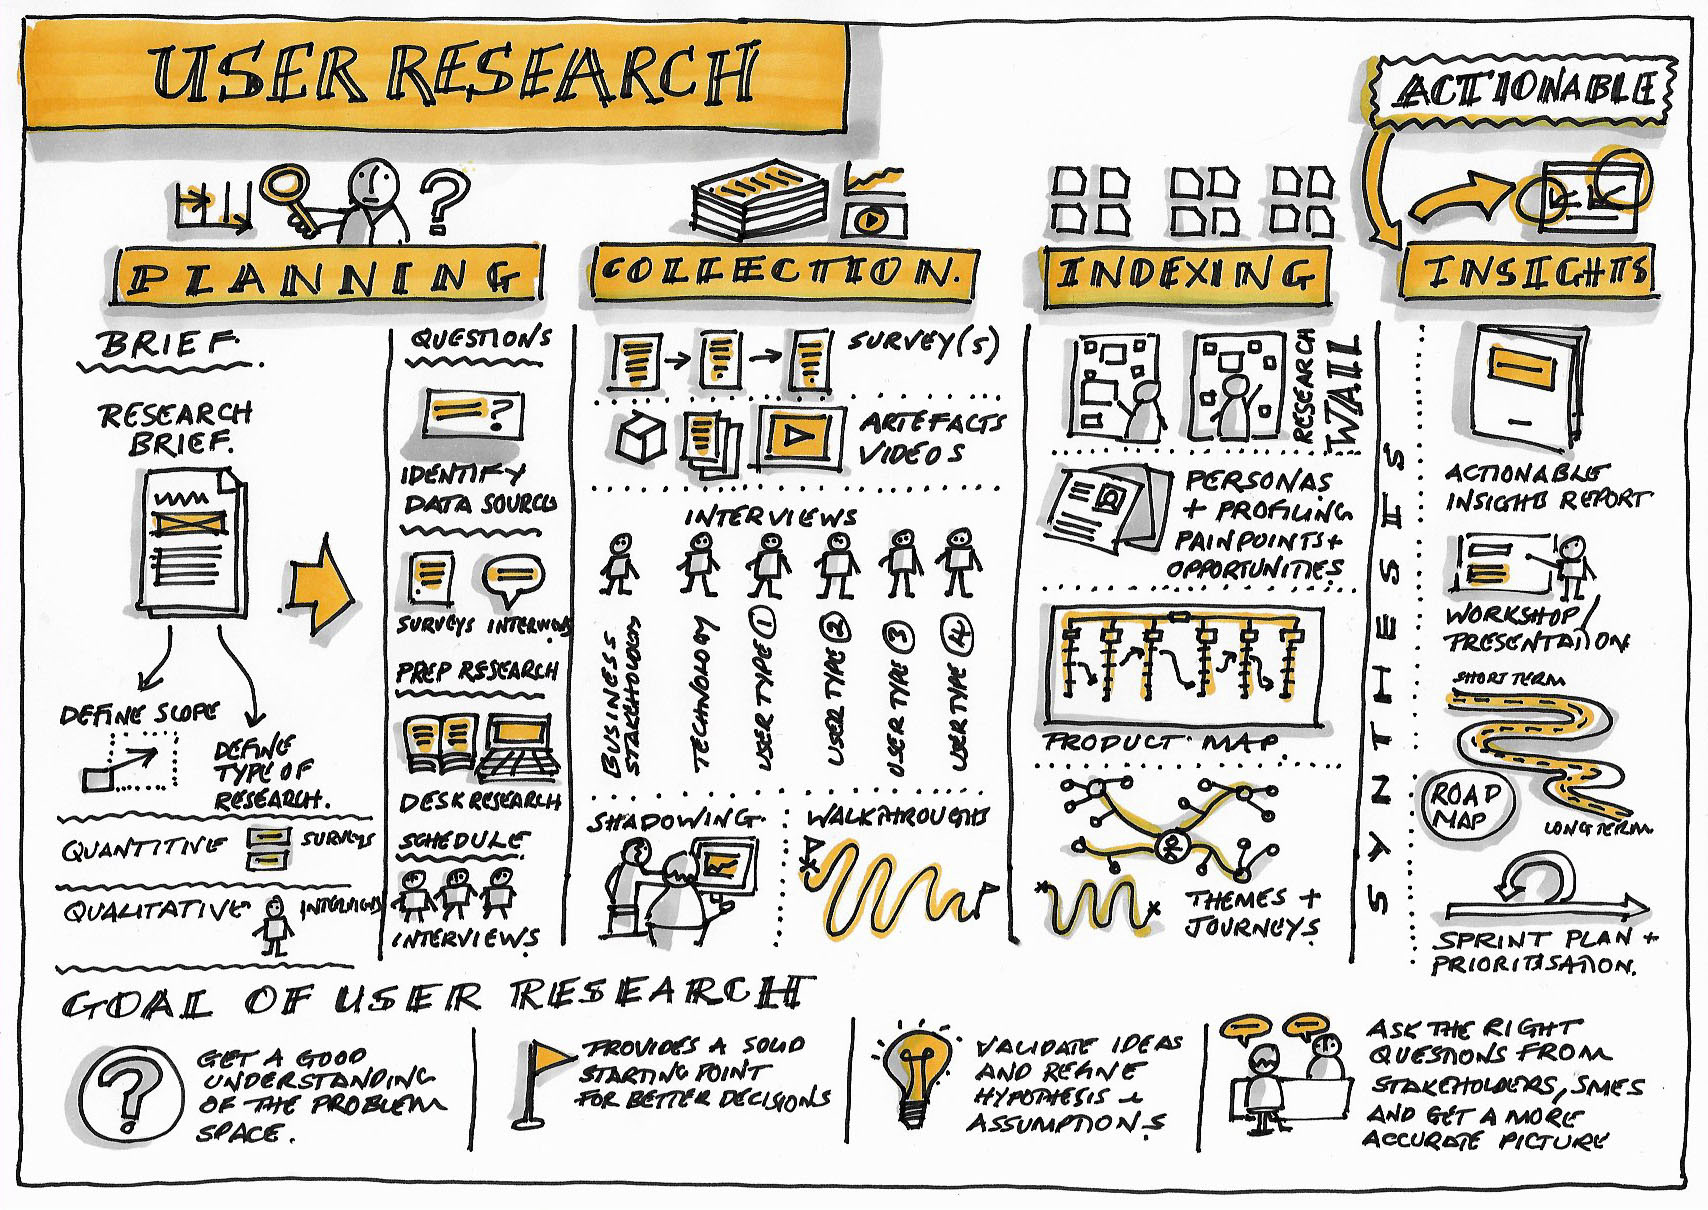 USER RESEARCH
ACTIONABLE
PLANNING
BRIEF.
RESEARCH
BRIEF.
DEFINE SCOPE
DEFINE
TYPE OF
RESEARCH.
QUANTITIVE
SURVEYS
QUALITATIVE
INTERVIEWS
QUESTIONS
?
IDENTIFY
DATA SOURCES
SURVEYS INTERVIEWS
PREP RESEARCH
DESK RESEARCH
SCHEDULE
INTERVIEWS
COLLECTION.
SURVEY(S)
ARTEFACTS
VIDEOS
INTERVIEWS
BUSINESS
STAKEHOLDERS
TECHNOLOGY
USER TYPE 1
USER TYPE 2
USER TYPE 3
USER TYPE 4
SHADOWING.
WALKTHROUGHS
INDEXING
RESEARCH
WALL
PERSONAS
+ PROFILING
PAINPOINTS +
OPPORTUNITIES
PRODUCT MAP
THEMES +
JOURNEYS
SYNTHESIS
INSIGHTS
ACTIONABLE
INSIGHTS REPORT
WORKSHOP/
PRESENTATION
SHORT TERM
ROAD
MAP
LONG TERM
SPRINT PLAN +
PRIORITISATION.
GOAL OF USER RESEARCH
?
GET A GOOD
UNDERSTANDING
OF THE PROBLEM
SPACE.
PROVIDES A SOLID
STARTING POINT
FOR BETTER DECISIONS
VALIDATE IDEAS
AND REFINE
HYPOTHESIS +
ASSUMPTIONS
ASK THE RIGHT
QUESTIONS FROM
STAKEHOLDERS, SMES
AND GET A MORE
ACCURATE PICTURE